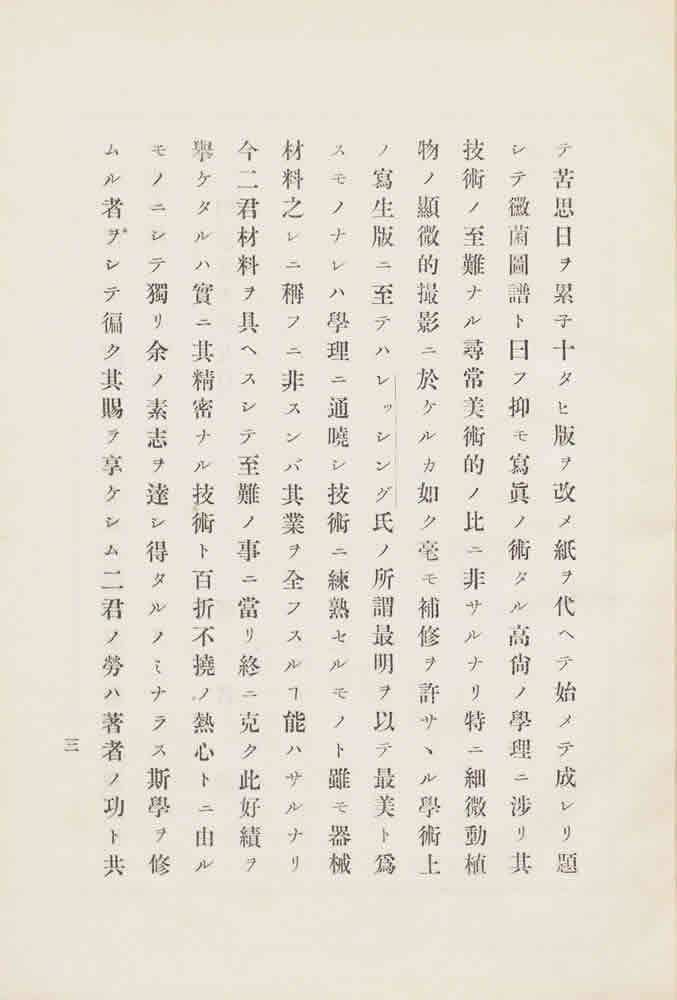 テ苦思日ヲ累子十タヒ版ヲ改メ紙ヲ代ヘテ始メテ成レリ題
シテ黴菌圖譜ト曰フ抑モ寫眞ノ術タル高尙ノ學理ニ涉リ其
技術ノ至難ナル尋常美術的ノ比ニ非サルナリ特ニ細微動植
物ノ顯微的撮影ニ於ケルカ如ク毫モ補修ヲ許サヽル學術上
ノ寫生版ニ至テハレッシング氏ノ所謂最明ヲ以テ最美ト爲
スモノナレハ學理ニ通曉シ技術ニ練熟セルモノト雖モ器械
材料之レニ稱フニ非スンバ其業ヲ全フスルヿ能ハサルナリ
今二君材料ヲ具ヘスシテ至難ノ事ニ當リ終ニ克ク此好績ヲ
擧ケタルハ實ニ其精密ナル技術ト百折不撓ノ熱心トニ由ル
モノニシテ獨リ余ノ素志ヲ達シ得タルノミナラス斯學ヲ修
ムル者ヲシテ徧ク其賜ヲ享ケシム二君ノ勞ハ著者ノ功ト共
三